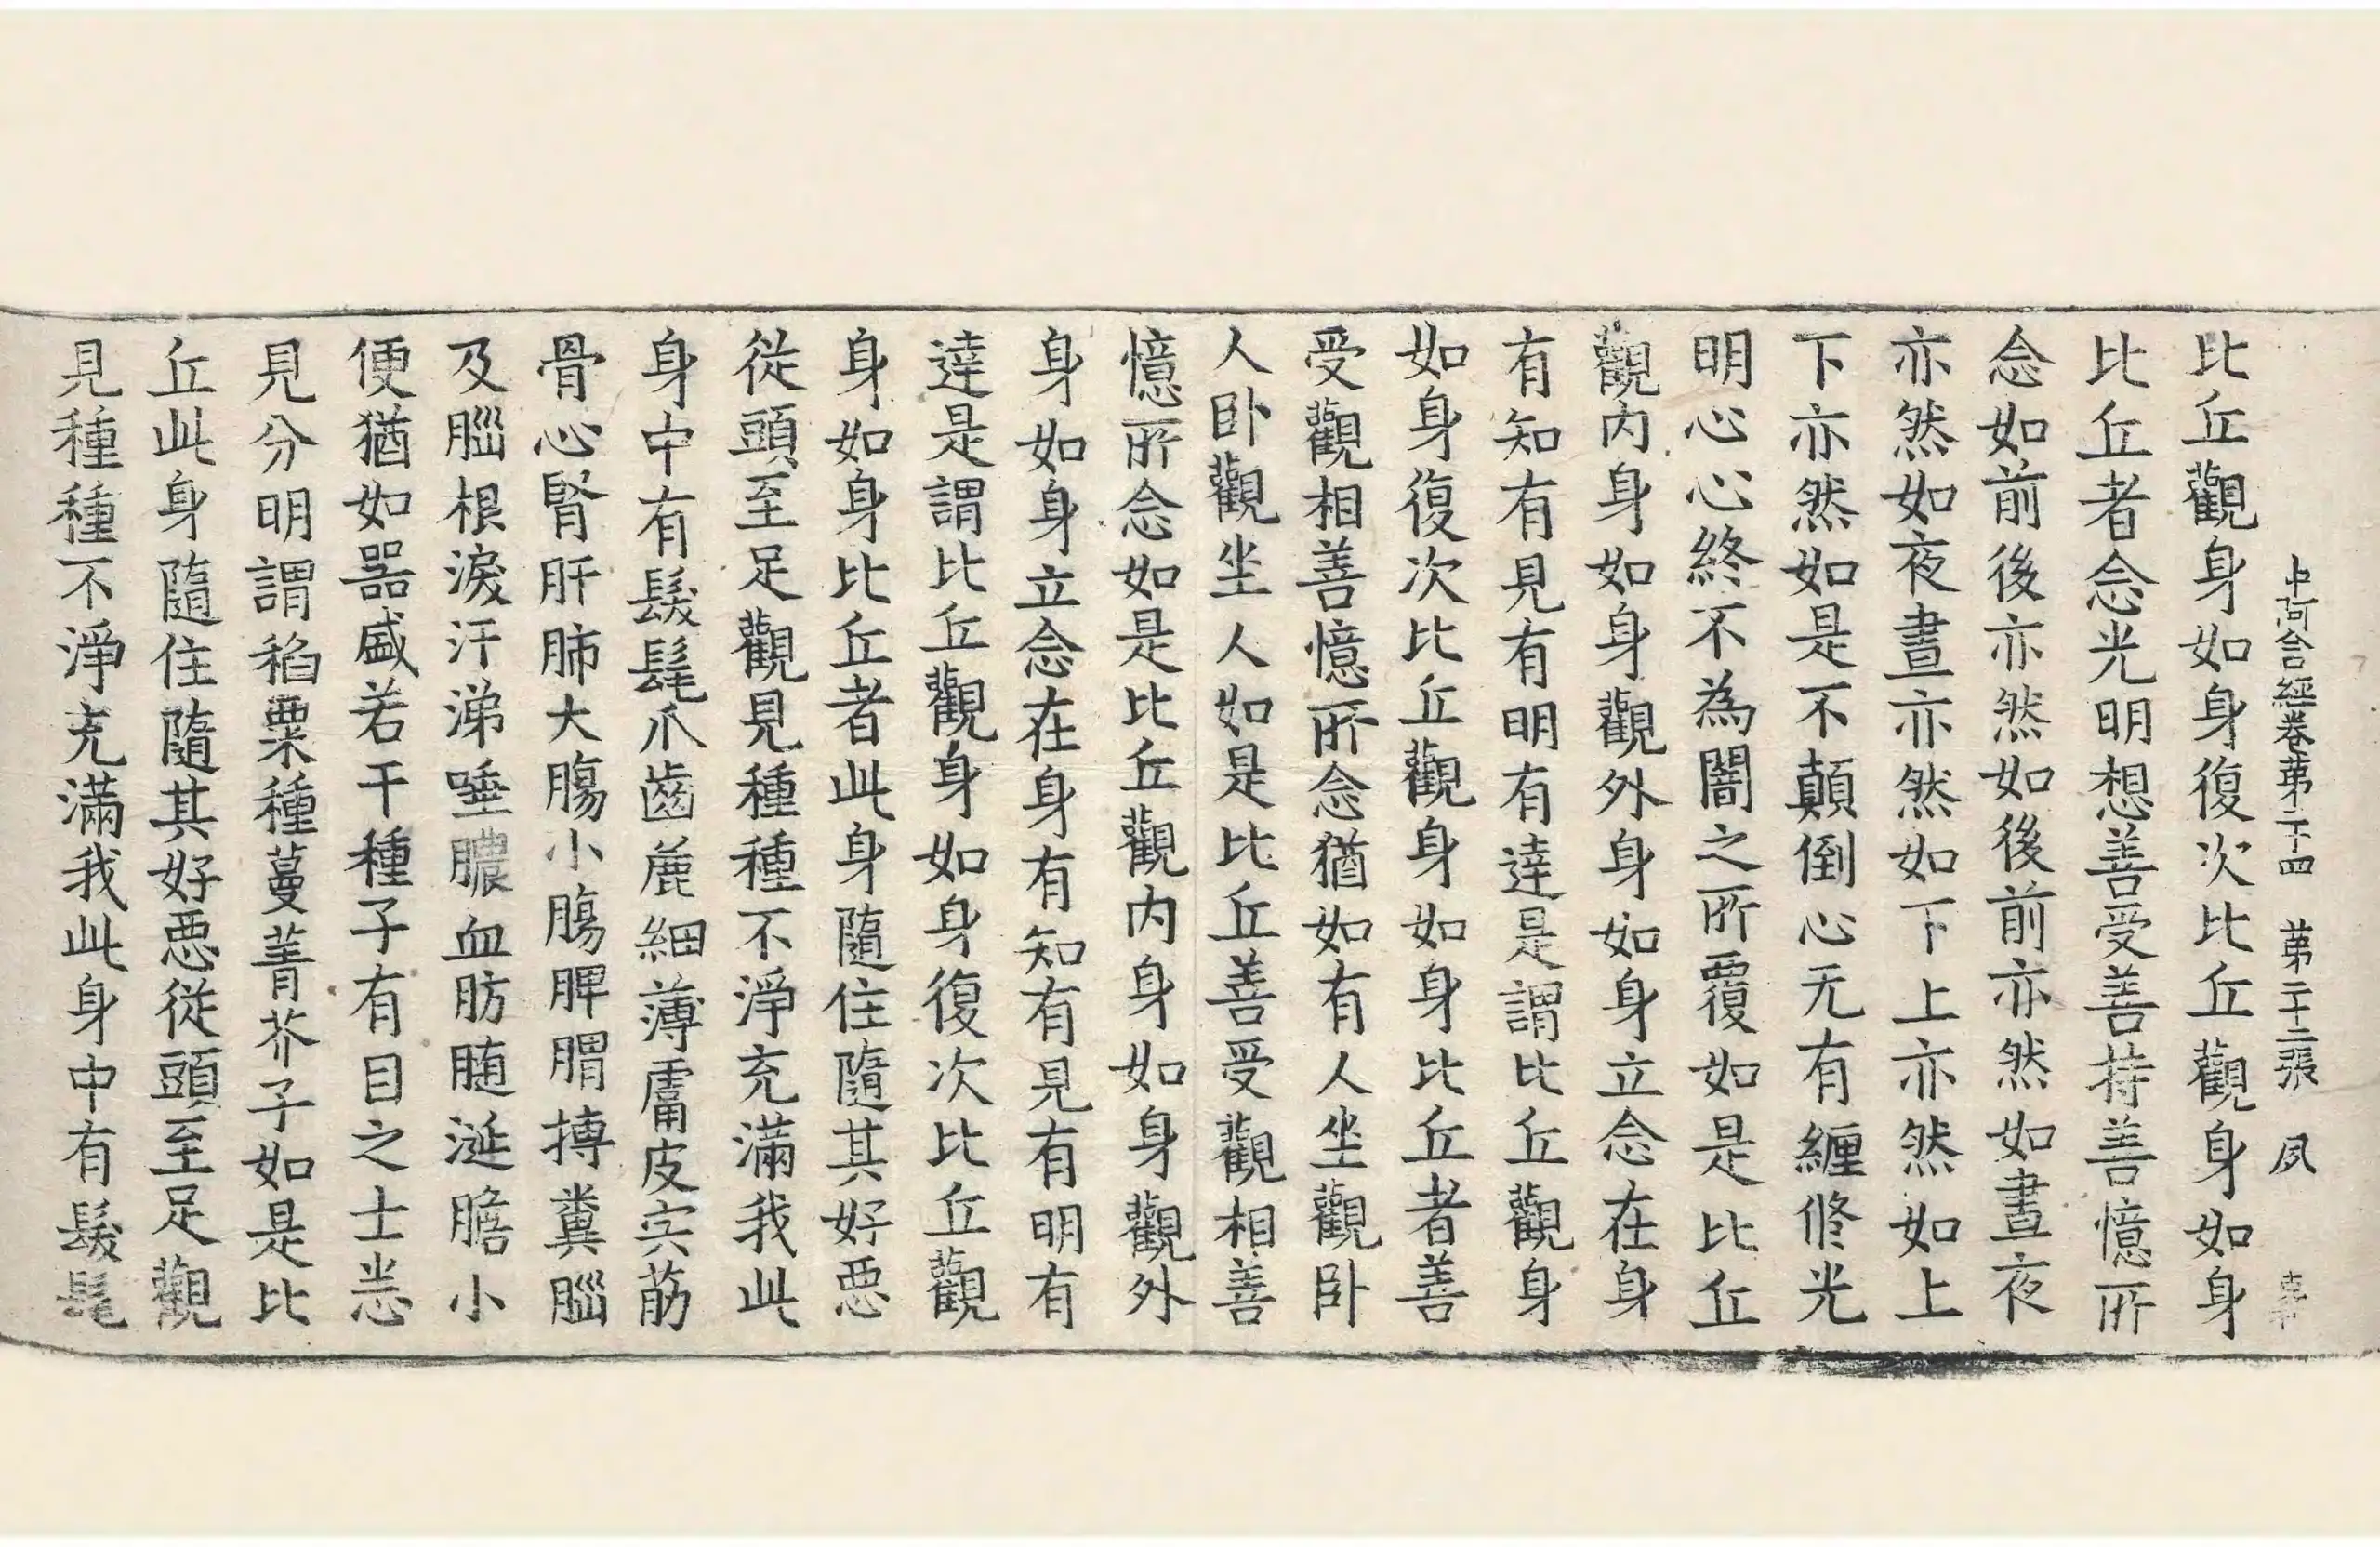 中阿含經卷第二十四　第二十二張　夙
比丘觀身如身復次比丘觀身如身
比丘者念光明想善受善持善憶所
念如前後亦然如後前亦然如晝夜
亦然如夜晝亦然如下上亦然如上
下亦然如是不顛倒心无有纏修光
明心心終不為闇之所覆如是比丘
觀内身如身觀外身如身立念在身
有知有見有明有達是謂比丘觀身
如身復次比丘觀身如身比丘者善
受觀相善憶所念猶如有人坐觀卧
人卧觀坐人如是比丘善受觀相善
憶所念如是比丘觀内身如身觀外
身如身立念在身有知有見有明有
達是謂比丘觀身如身復次比丘觀
身如身比丘者此身隨住隨其好惡
從頭至足觀見種種不淨充滿我此
身中有髮髦爪齒麁細薄膚皮宍筋
骨心腎肝肺大腸小腸脾胃摶糞腦
及腦根淚汗涕唾膿血肪䐉涎膽小
便猶如器盛若干種子有目之士悉
見分明謂稻粟種蔓菁芥子如是比
丘此身隨住隨其好惡從頭至足觀
見種種不淨充滿我此身中有髮髦